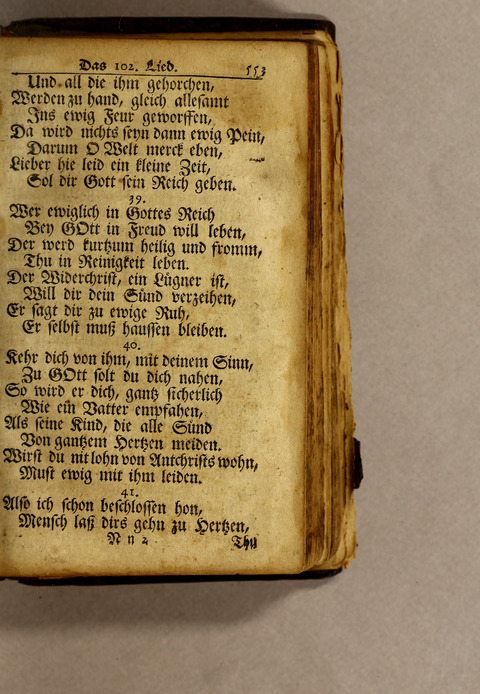 Das 102. Lied. 553
Und all die ihm gehorchen,
Werden zu hand, gleich allesamt
Ins ewig Feur geworffen,
Da wird nichts seyn dann ewig Pein,
Darum O Welt merck eben,
Lieber hie leid ein kleine Zeit,
Sol dir Gott sein Reich geben.
39.
Wer ewiglich in Gottes Reich
Bey GOtt in Freud will leben,
Der werd kurtzum heilig und fromm,
Thu in Reinigkeit leben.
Der Widerchrist, ein Lügner ist,
Will dir dein Sünd verzeihen,
Er sagt dir zu ewige Ruh,
Er selbst muß haussen bleiben.
40.
Kehr dich von ihm, mit deinem Sinn,
Zu GOtt solt du dich nahen,
So wird er dich, gantz sicherlich
Wie ein Vatter empfahen,
Als seine Kind, die alle Sünd
Von gantzem Hertzen meiden.
Wirst du nit lohn von Antchrists wohn,
Must ewig mit ihm leiden.
41.
Also ich schon beschlossen hon,
Mensch laß dirs gehn zu Hertzen,
N n 2 Thu